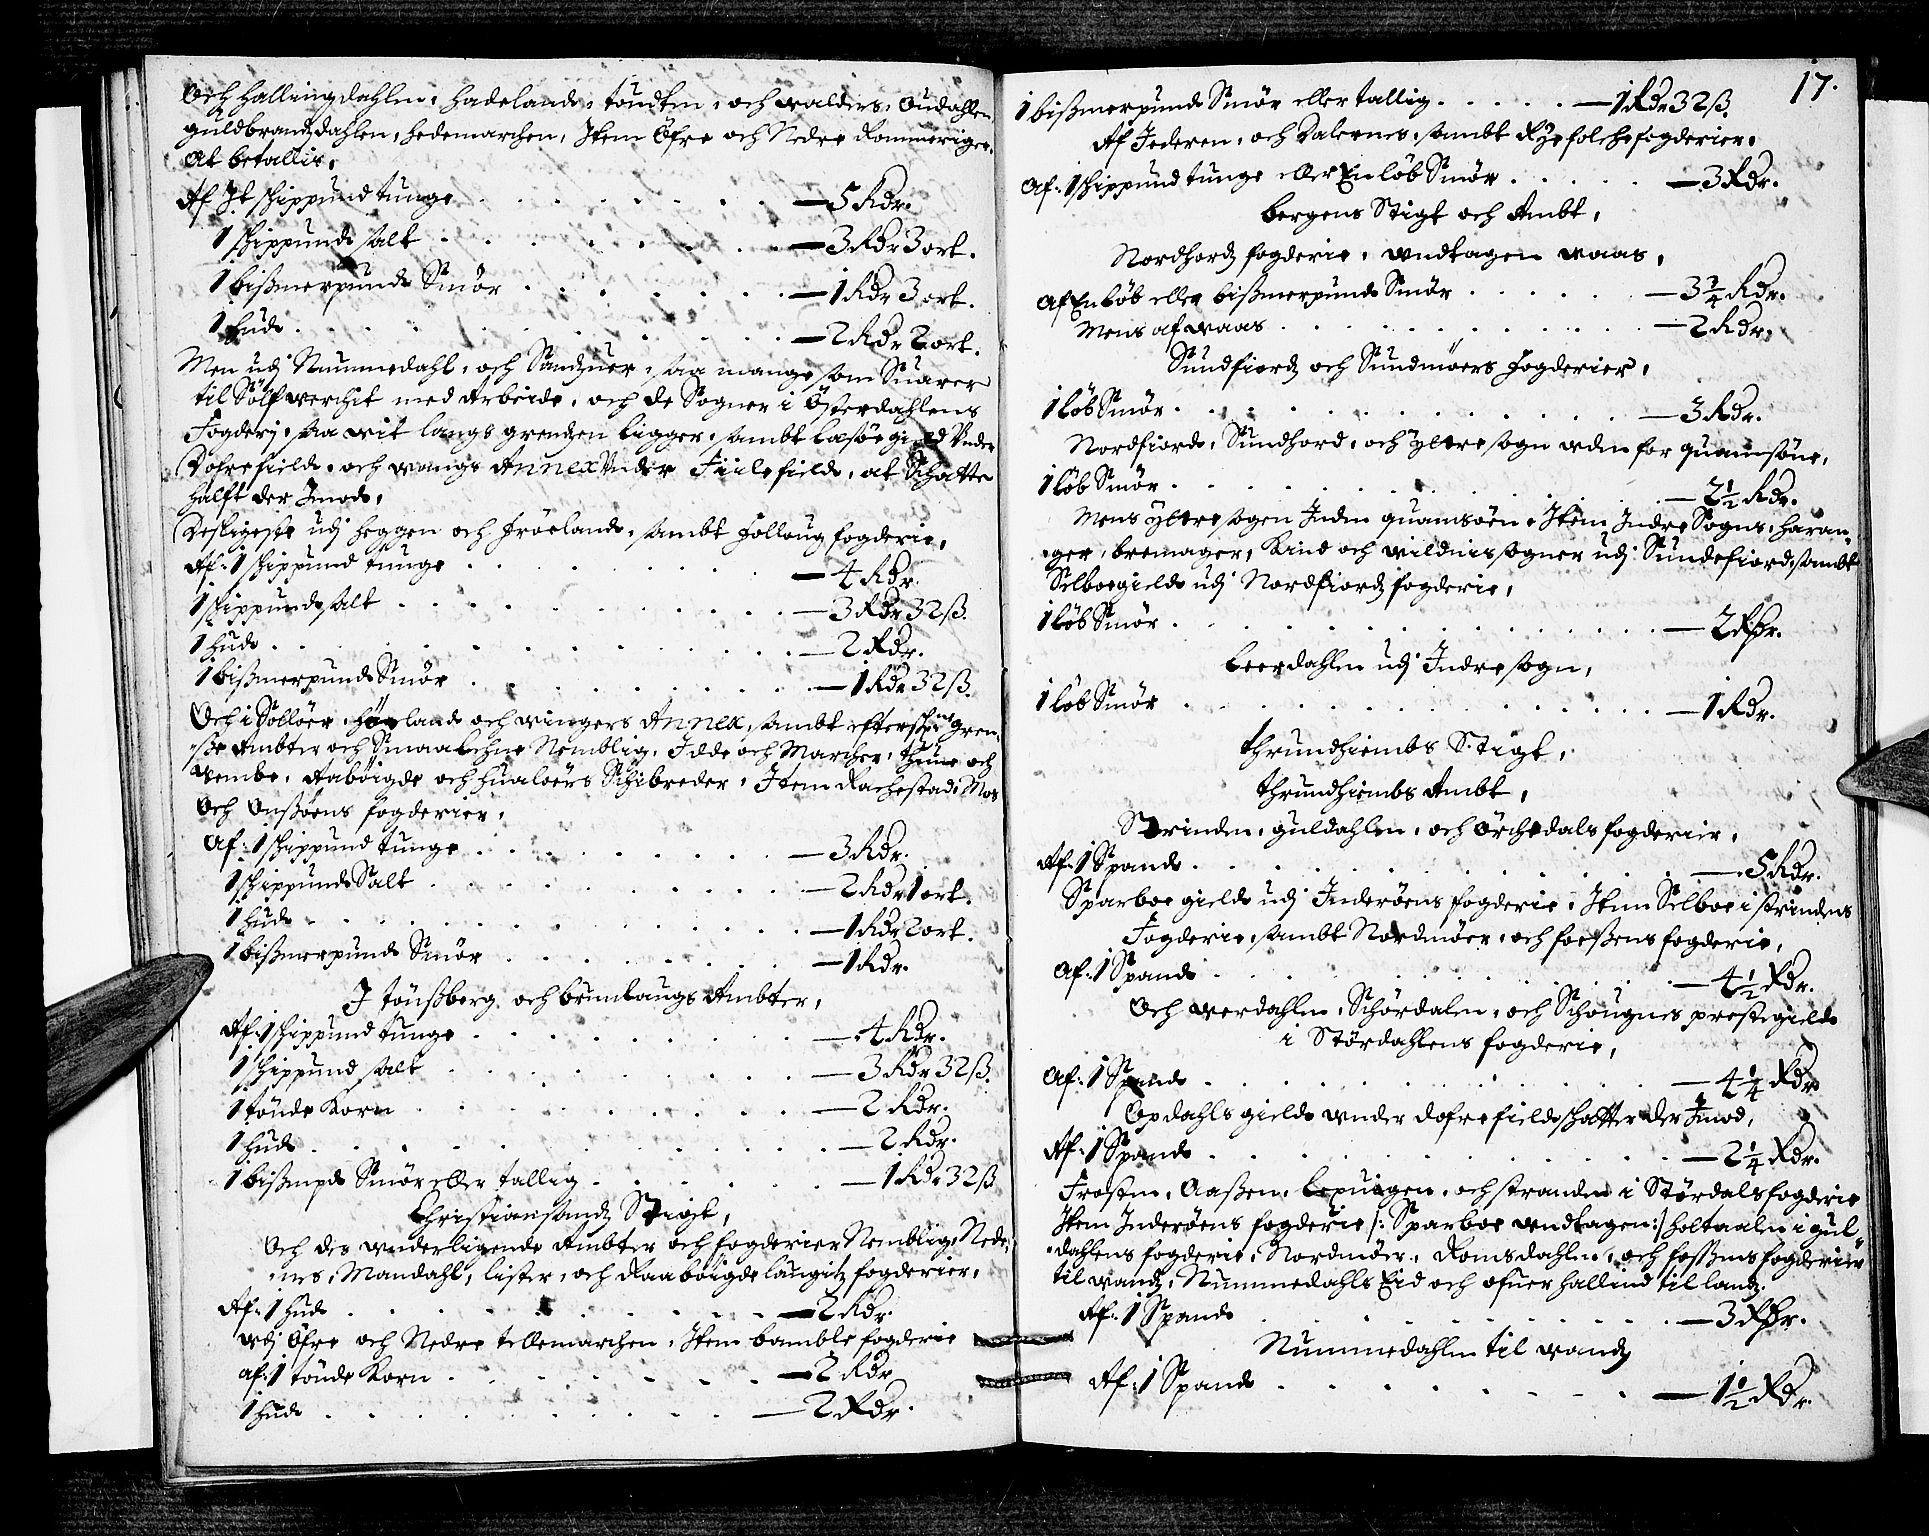 Och Hallingdahlen, Hadelands, toudten, och walders, Oudahlen
guldbrandzdahlen, Hedemarchen, Item Öfre och Nedre Rommeriger,
At betallis,
Af Jt schippund tunge . . . . . . . — 5 Rdr.
1 schippunds salt . . . . . . . — 3 Rdr 3 ort.
1 bißmerpunds Smör . . . . . . — 1 Rdr 3 ort.
1 huds . . . . . . . . — 2 Rdr 2 ort.
Men udj Nummedahl, och Sandzuer, saa mange som Suarer
til Sölfwerchit med Arbeide, och de Sogner i Österdahlens
Fogderj, saa wit langs grendzen ligger, sambt Lesöe gield Under
Dofrefields, och wangs Annex Under Fiilefields, at Schatte
halft der Jmods,
Desligeste udj Heggen och Fröelands, sambt Folloug fogderie,
Af: 1 schippund tunge . . . . . . — 4 Rdr.
1 schippunds salt . . . . . . . — 3 Rdr 32 ß.
1 huds . . . . . . . . — 2 Rdr.
1 bißmerpunds Smör . . . . . . — 1 Rdr 32 ß.
Och i Sollöer, Höylands och wingers Annex, sambt efterschr: gren-
ße Ambter och Smaalehne Nemblig, Idde och Marcher, thune och
wembe, Aaböigde och Hualöers Schibreder, Item Rachestad, Mos
Och Onßöens fogderier,
Af: 1 schippund tunge . . . . . . — 3 Rdr.
1 schippunds Salt . . . . . . — 2 Rdr 1 ort.
1 huds . . . . . . . . — 1 Rdr 2 ort.
1 bißmerpunds Smör . . . . . — 1 Rdr.
I Tönßberg och brunlaugs Ambter,
Af: 1 schippund tunge . . . . . . — 4 Rdr.
1 schippund salt . . . . . . . — 3 Rdr 32 ß.
1 tönde Korn . . . . . . . — 2 Rdr.
1 huds . . . . . . . . — 2 Rdr.
1 bißmpds Smör eller tallig . . . . . — 1 Rdr 32 ß
Christiansandz Stigt,
Och des underligende Ambter och fogderier Nemblig, Nede-
nes, Mandahl, Lister, och Raaböigde laugitz fogderier,
Af: 1 huds . . . . . . . — 2 Rdr.
Udj Öfre och Nedre tellemarchen, Item bamble fogderie
af: 1 tönde Korn . . . . . . — 2 Rdr
1 huds . . . . . . . — 2 Rdr.
17.
1 bißmerpunds Smör eller tallig . . . . . — 1 Rdr 32 ß.
Af Jederen, och Dalernes, sambt Ryefolche fogderier,
Af: 1 schippund tunge eller En löb Smör . . . . — 3 Rdr.
bergens Stigt och Ambt,
Nordhordz fogderie, undtagen waas,
Af En löb eller bißmerpunds Smör . . . . — 3 3/4 Rdr.
Mens af waas . . . . . . . — 2 Rdr,
Sundfiordz och Sundmöers Fogderier,
1 löb Smör . . . . . . . . — 3 Rdr.
Nordfiords, Sundhord, och yttre sogn uden for quamsöne,
1 löb Smör . . . . . . . . — 2 1/2 Rdr.
Mens yttre sogen Inden quamsöen, Item Indre Sogns, Haran-
ger, bremager, Kind och wildnis sogner udj Sundefiord, sambt
Selboegields udj Nordfiordz fogderie,
1 löb Smör . . . . . . . . — 2 Rdr.
Leerdahlen udj Indre sogn,
1 löb Smör . . . . . . . . — 1 Rdr.
Thrundhiembs Stigt,
Thrundhiembs Ambt,
Strinden, guldahlen, och Örchedals fogderier,
Af: 1 Spands . . . . . . . . — 5 Rdr.
Sparboe gields udj Inderöens fogderie, Item Selboe i strindens
Fogderie, sambt Nordmöer, och foeßens fogderie,
Af: 1 Spands . . . . . . . . — 4 1/2 Rdr.
Och werdahlen, Schördalen, och Schougnes prestegields
i Stördahlens fogderie,
Af: 1 Spands . . . . . . . . — 4 1/4 Rdr
Opdahls gields under dofrefields schatter der Imod,
Af: 1 Spands . . . . . . . . — 2 1/4 Rdr.
Frosten, Aaßen, Lexuigen, och stranden i Stördals fogderie
Item Inderöens fogderie /: Sparboe undtagen :/ holtaalen i gul-
dahlens fogderie, Nordmöer, Romsdahlen, och foßens fogderier
til wandz, Nummedahls Eid och ofuer hallind til landz.
Af: 1 Spands . . . . . . . — 3 Rdr.
Nummedahlen til wandz
Af: 1 Spands . . . . . . . — 1 1/2 Rdr.